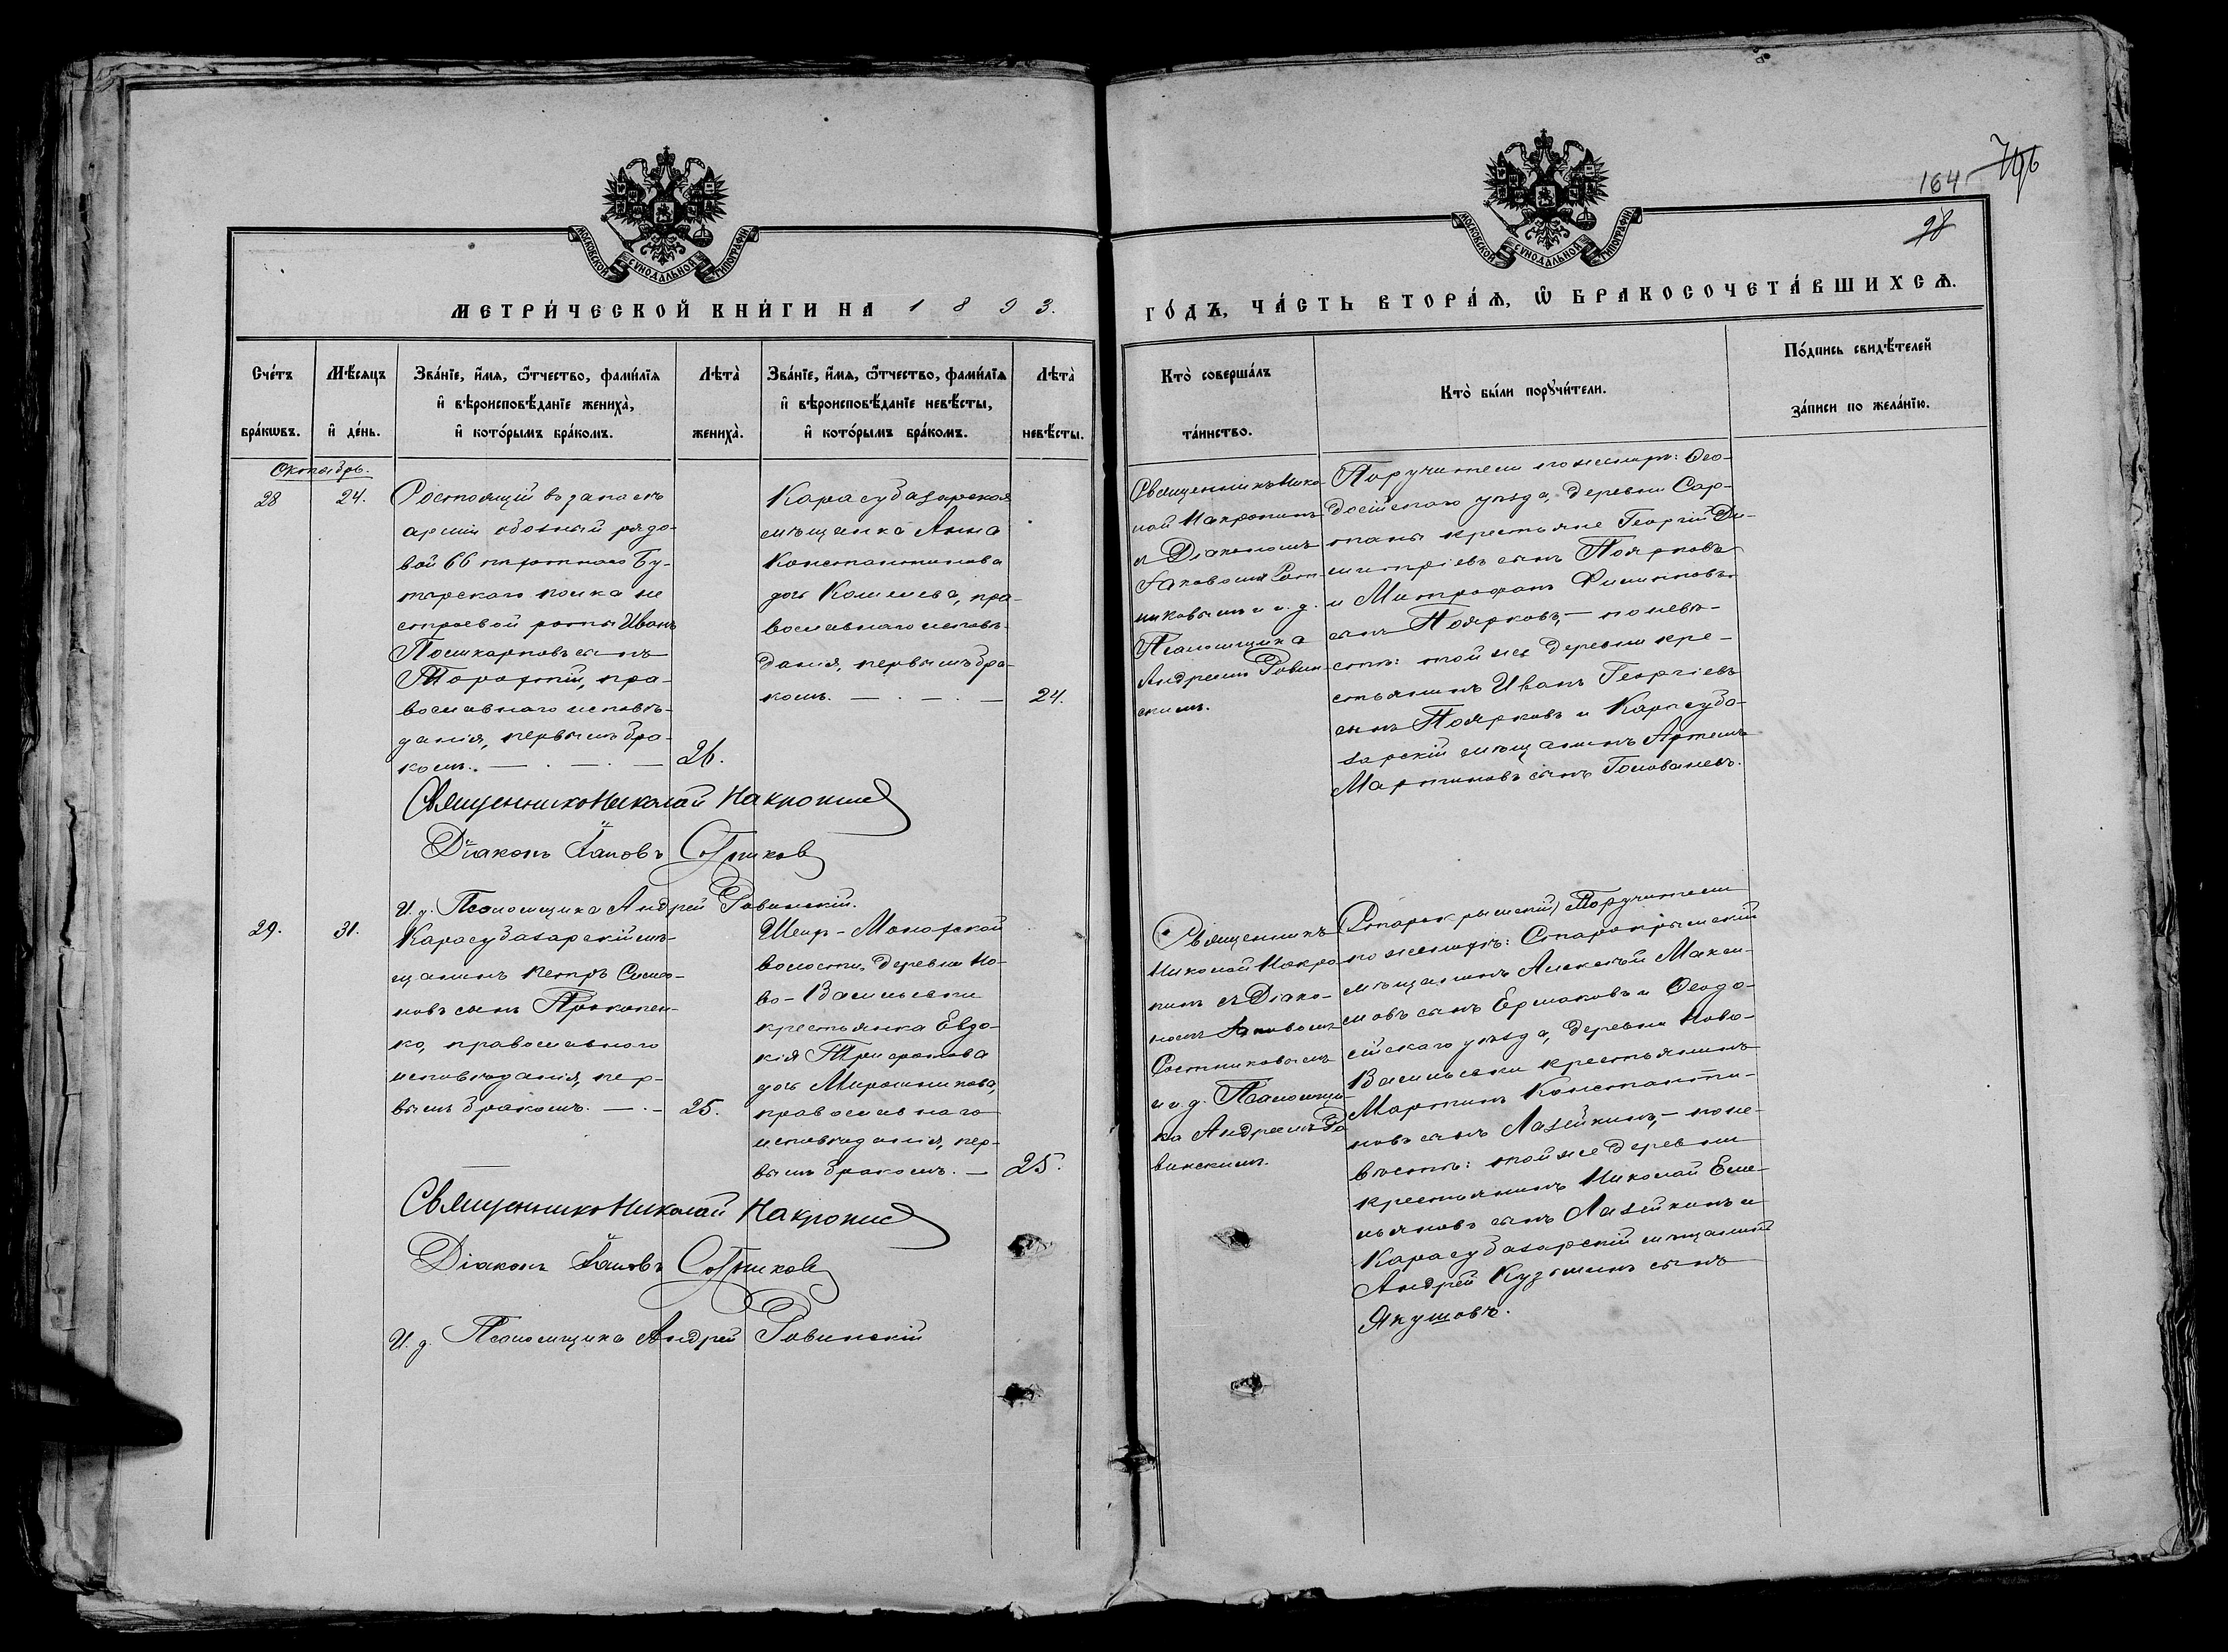 164 796
28
МОСКОВСКОЙ СѴНОДАЛЬНОЙ ТИПОГРАФІИ
МОСКОВСКОЙ СѴНОДАЛЬНОЙ ТИПОГРАФІИ
МЕТРИ́ЧЕСКОЙ КНИ́ГИ НА 1893.
ГО́ДЪ, ЧА́СТЬ ВТОРА́Ѧ, Ѡ БРАКОСОЧЕТА́ВШИХСѦ.
Сче́тъ
бра́кѡвъ.
Мѣ́сяцъ
и де́нь.
Зва́нїе, и́мѧ, ѻ҆́тчество, фами́лїѧ
и҆ вѣроисповѣ́данїе жениха̀,
и҆ кото́рымъ бра́комъ.
Лѣта̀
жениха̀.
Зва́нїе, и́мѧ, ѻ҆́тчество, фами́лїѧ
и҆ вѣроисповѣ́данїе невѣ́сты,
и҆ кото́рымъ бра́комъ.
Лѣта̀
невѣ́сты.
Кто̀ соверша́лъ
та́инство.
Кто̀ бы́ли порꙋчи́тели.
По́дпись свидѣ́телей
за́писи по жела́нїю.
Октябрь.
28
24.
Состоящій въ запасѣ
арміи обозный рядо-
вой 66 пѣхотнаго Бу-
тырскаго полка не
строевой роты Иванъ
Поликарповъ сынъ
православнаго исповѣ-
данія, первымъ бра-
комъ.
26.
Карасубазарская
мѣщанка Анна
Константинова
дочь пра-
вославнаго исповѣ-
данія, первымъ бра-
комъ.
24.
Священникъ Нико-
лай Накропинъ
съ Діакономъ
Іаковомъ Сот-
никовымъ и и. д.
Псаломщика
Андреемъ Равин-
скимъ.
Поручители по женихѣ: Ѳео-
досійскаго уѣзда, деревни Сар-
таны крестьяне Георгій Ди-
митріевъ сынъ Поярковъ
и Митрофанъ Филипповъ
сынъ Поярковъ, – по невѣ-
стѣ: той же деревни кре-
стьянинъ Иванъ Георгіевъ
сынъ Поярковъ и Карасуба-
зарскій мѣщанинъ Артемъ
Мартиновъ сынъ Голованевъ.
Священникъ Николай Накропинъ
Діаконъ Іаковъ Сотниковъ
И. д. Псаломщика Андрей Равинскій.
29.
31.
Карасубазарскій мѣ-
щанинъ Петръ Симео-
новъ сынъ Прокопен-
ко, православнаго
исповѣданія, пер-
вымъ бракомъ.
25.
Шейх-Монахской
волости, деревни Но-
во-Васильевки
крестьянка Евдо-
кія Трифонова
дочь Мирошникова,
православнаго
исповѣданія, пер-
вымъ бракомъ.
25.
Священникъ
Николай Накро-
пинъ съ Діако-
номъ Іаковомъ
Сотниковымъ
и и. д. Псаломщи-
ка Андреемъ Ра-
винскимъ.
(Старокрымскій) Поручители
по женихѣ: Старокрымскій
мѣщанинъ Алексѣй Макси-
мовъ сынъ Ермаковъ и Ѳеодо-
сійскаго уѣзда, деревни Ново-
Васильевки крестьянинъ
Мартинъ Константи-
новъ сынъ Лазейкинъ, – по не-
вѣстѣ: той же деревни
крестьянинъ Николай Еме-
льяновъ сынъ Лазейкинъ и
Карасубазарскій мѣщанинъ
Андрей Кузьминъ сынъ
Якушовъ.
Священникъ Николай Накропинъ
Діаконъ Іаковъ Сотниковъ
И. д. Псаломщика Андрей Равинскій